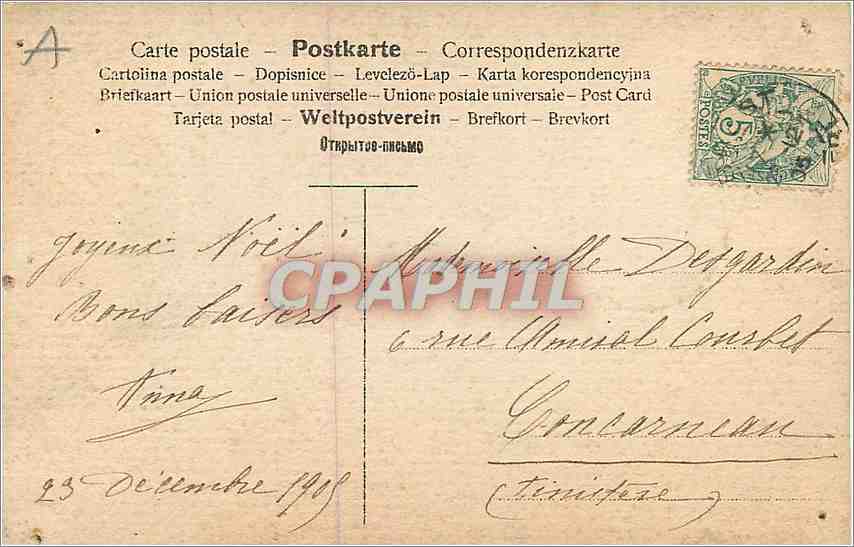 A
Carte postale – Postkarte – Correspondenzkarte
Cartolina postale – Dopisnice – Levelező-Lap – Karta korespondencyjna
Briefkaart – Union postale universelle – Unione postale universale – Post Card
Tarjeta postal – Weltpostverein – Brefkort – Brevkort
Открытое-письмо
POSTES
5
Joyeux Noël !
Bons baisers
Anna
23 Décembre 1905
Mademoiselle Desgardin
6 rue Amiral Courbet
Concarneau
(Finistère)
CPAPHIL